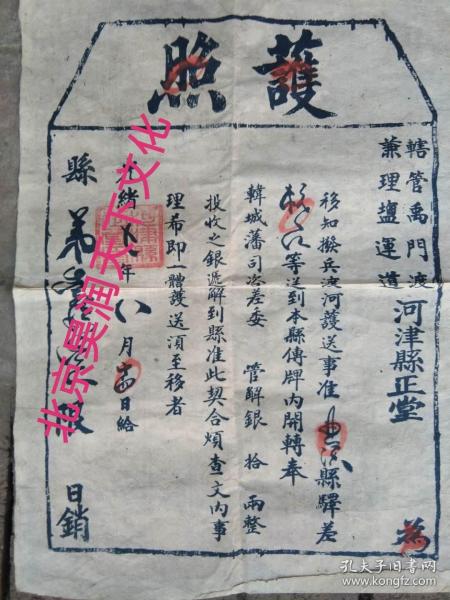 護照
轄管禹門渡
兼理鹽運道
河津縣正堂
為
移知撥兵渡河護送事准 縣驛差
等送到本縣傳牌內開轉奉
韓城藩司咨差委 管解銀 拾 兩整
投收之銀遞解到縣准此契合煩查文內事
理希即一體護送須至移者
緒 年 八 月 日給
縣
日銷
北京昊润天下文化
孔夫子旧书网
www.kongfz.com